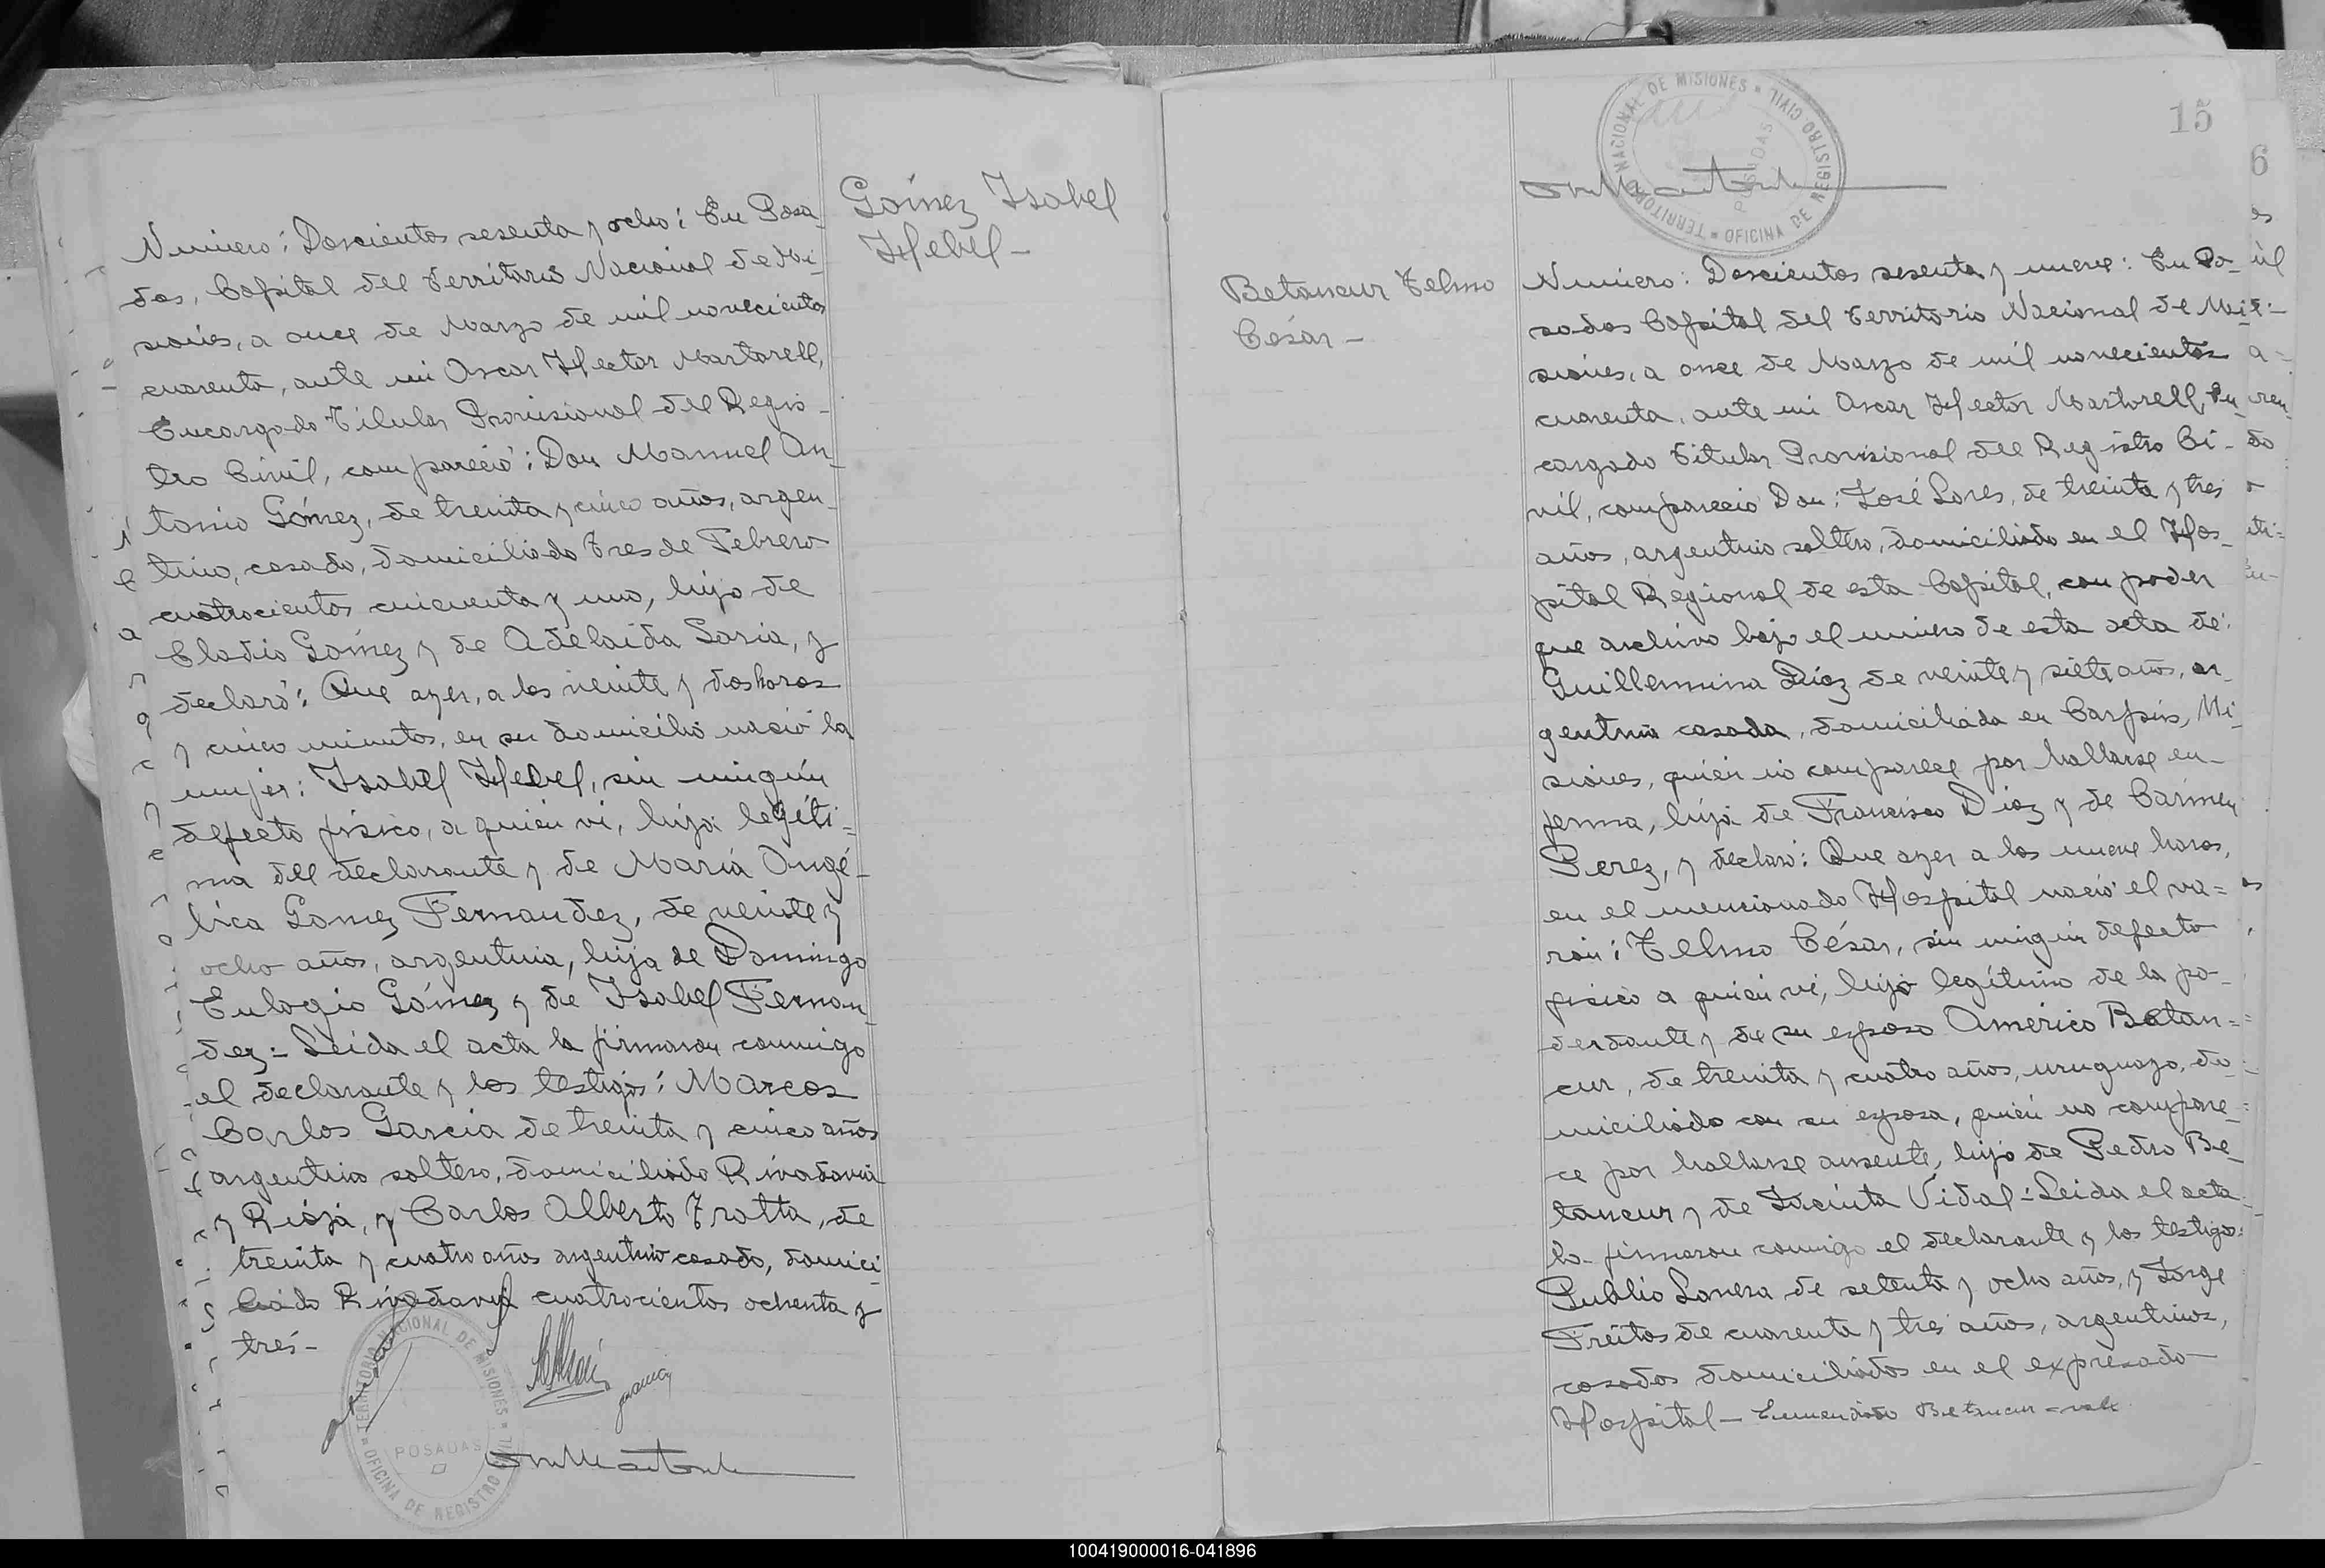 Gómez Isabel
Hebel-
Número: Doscientos sesenta y ocho: En Posa
das, Capital del Territorio Nacional de Mi-
siones, a once de Marzo de mil novecientos
cuarenta, ante mi Oscar Hector Martorell,
Encargado Titular Provisional del Regis-
tro Civil, compareció: Don Manuel An-
tonio Gómez, de treinta y cinco años, argen-
tino, casado, domiciliado Tres de Febrero
cuatrocientos cincuenta y uno, hijo de
Eladio Gómez y de Adelaida Soria, y
declaró: Que ayer, a las veinte y dos horas
y cinco minutos, en su domicilio nació la
mujer: Isabel Hebel, sin ningún
defecto físico, a quien vi, hija legíti=
ma del declarante y de María Angé-
lica Gomez Fernandez, de veinte y
ocho años, argentina, hija de Domingo
Eulogio Gómez y de Isabel Fernan-
dez= Leida el acta la firmaron conmigo
el declarante y los testigos: Marcos
Carlos Garcia de treinta y cinco años
argentino soltero, domiciliado Rivadavia
y Rioja, y Carlos Alberto Trotta, de
treinta y cuatro años argentino casado, domici
liado Rivadavia cuatrocientos ochenta y
tres-
TERRITORIO NACIONAL DE MISIONES
OFICINA DE REGISTRO CIVIL
POSADAS
15
TERRITORIO NACIONAL DE MISIONES
OFICINA DE REGISTRO CIVIL
POSADAS
Betancur Telmo
César-
Número: Doscientos sesenta y nueve: En Po-
sadas Capital del Territorio Nacional de Mi-
siones, a once de Marzo de mil novecientos
cuarenta, ante mi Oscar Hector Martorell, En-
cargado Titular Provisional del Registro Ci-
vil, compareció Don: José Lores, de treinta y tres
años, argentino soltero, domiciliado en el Hos-
pital Regional de esta Capital, con poder
que archivo bajo el número de esta acta de:
Guillermina Diez de veinte y siete años, ar-
gentina casada, domiciliada en Carpin, Mi-
siones, quién no comparece por hallarse en-
ferma, hija de Francisco Diez y de Cármen
Perez, y declaró: Que ayer a las nueve horas,
en el mencionado Hospital nació el va=
rón: Telmo César, sin ningún defecto
físico a quién vi, hijo legítimo de la po-
derdante y de su esposo Américo Betan=
cur, de treinta y cuatro años, uruguayo, do
miciliado con su esposa, quién no compare-
ce por hallarse ausente, hijo de Pedro Be-
tancur y de Jacinta Vidal= Leida el acta
la firmaron conmigo el declarante y los testigos:
Publio Lanera de setenta y ocho años, y Jorge
Freitas de cuarenta y tres años, argentinos,
casados domiciliados en el expresado
Hospital- Enmendado Betancur=vale
6
100419000016-041896